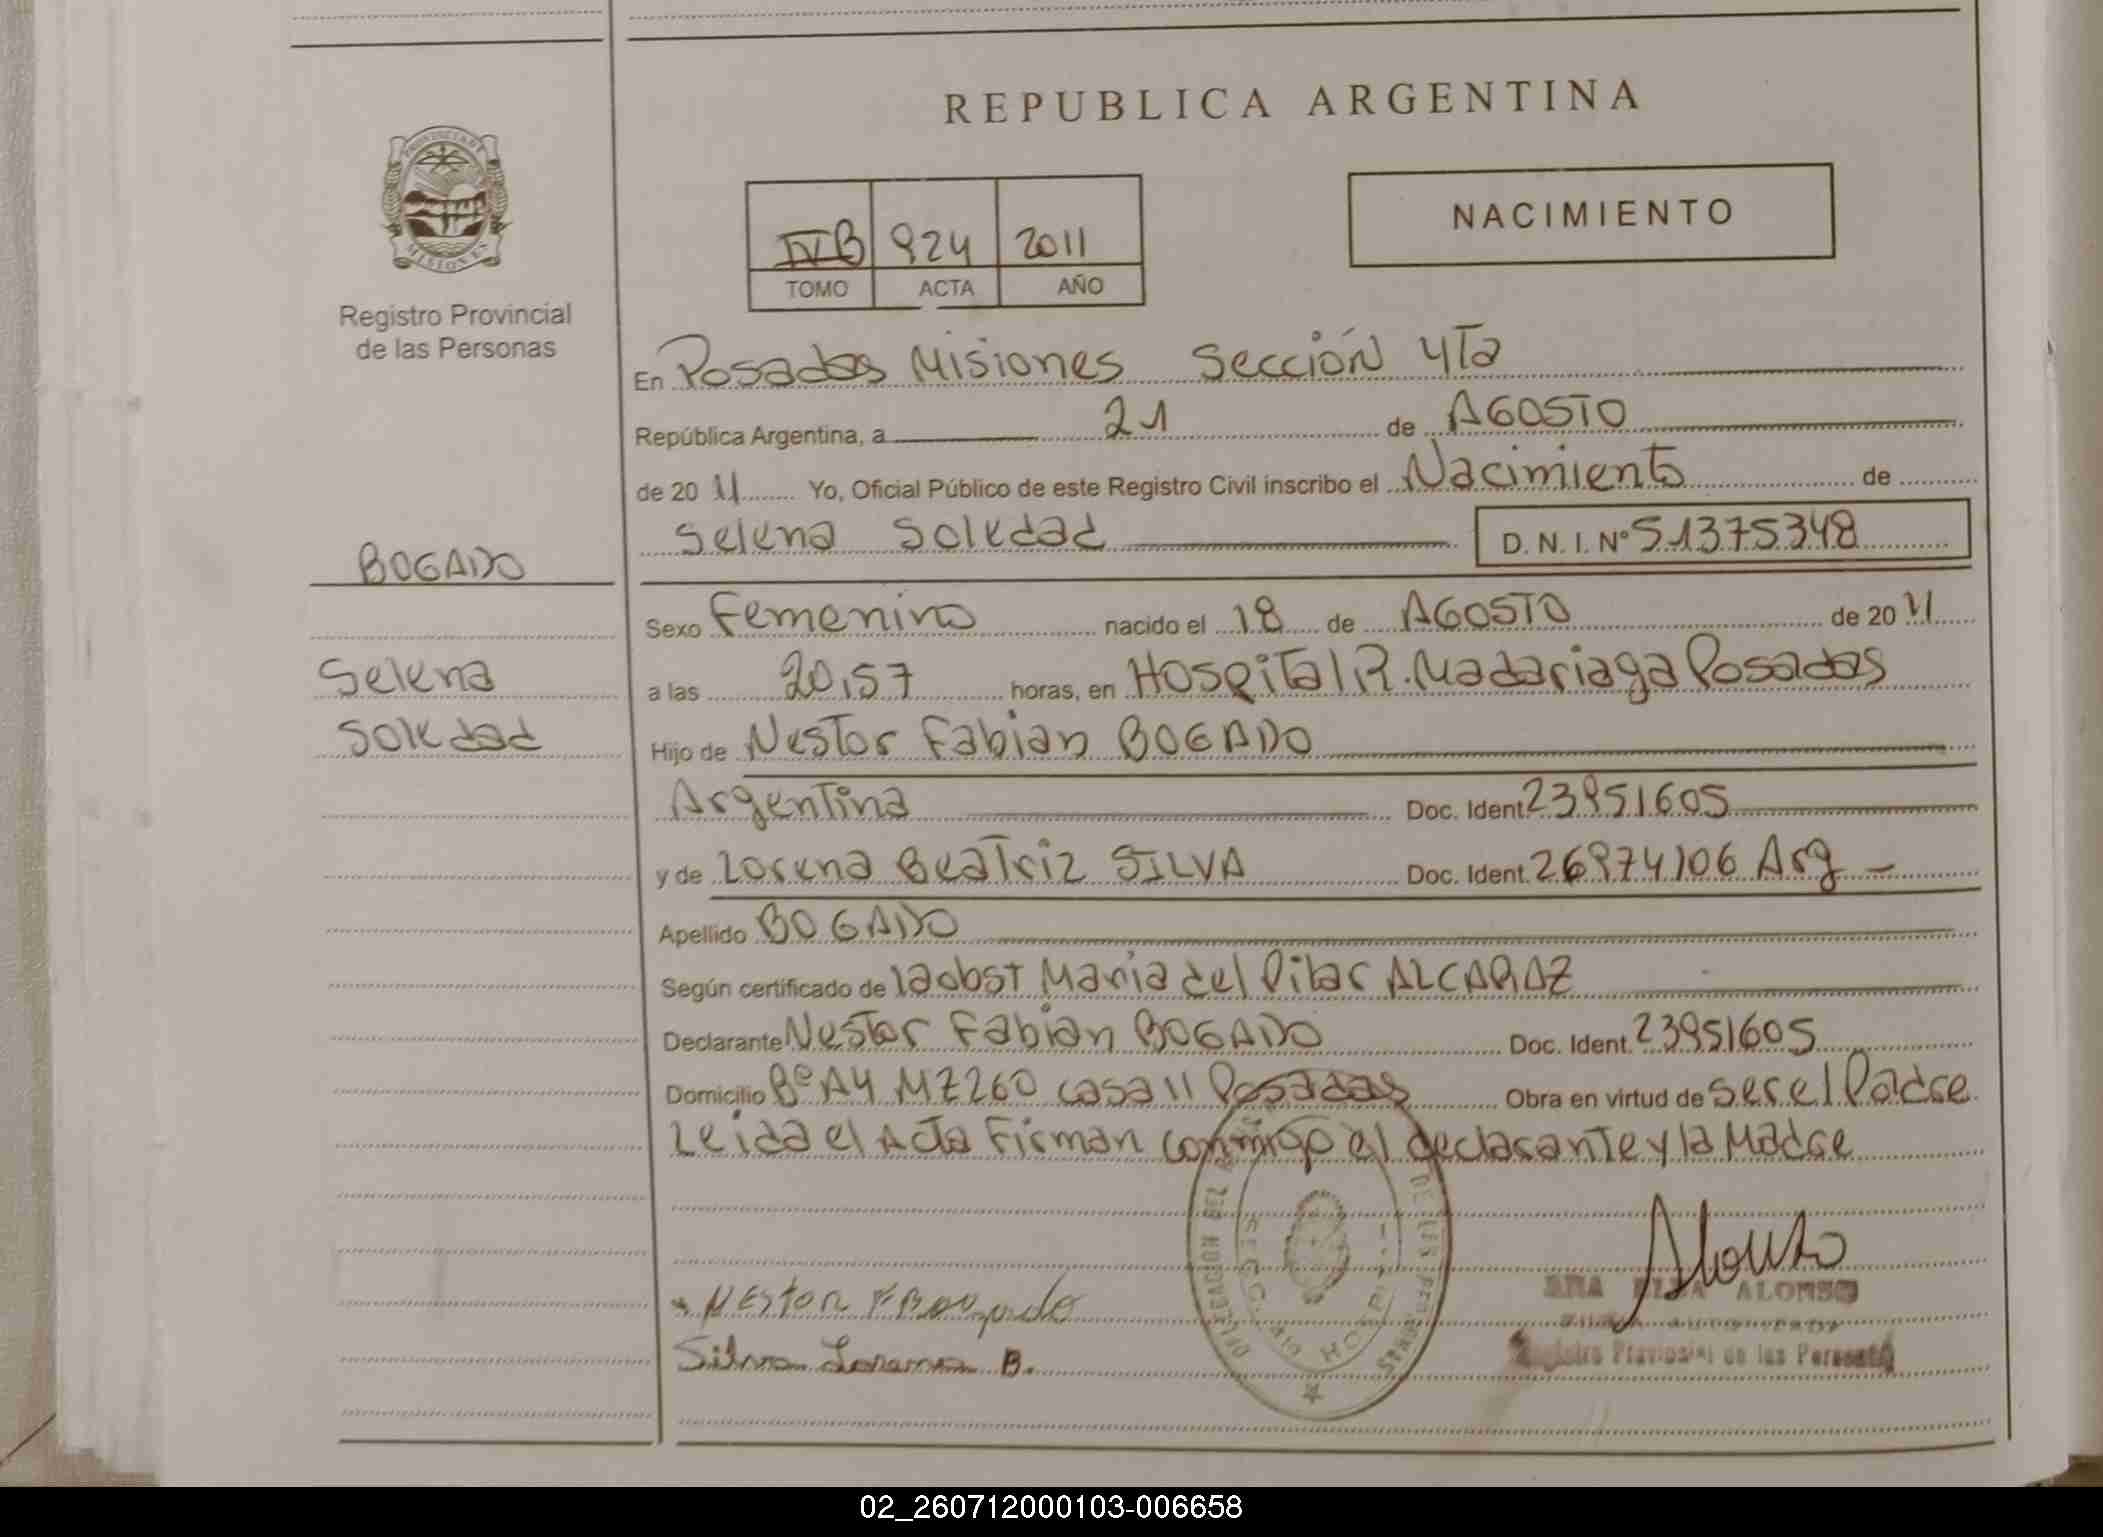 REPUBLICA ARGENTINA
PROVINCIA DE MISIONES
Registro Provincial
de las Personas
NACIMIENTO
IVB 924 2011
TOMO ACTA AÑO
En Posadas Misiones Sección 4Ta
República Argentina, a 21 de AGOSTO
de 2011 Yo, Oficial Público de este Registro Civil inscribo el Nacimiento de
Selena Soledad D.N.I. Nº 51375348
BOGADO
Sexo Femenino nacido el 18 de AGOSTO de 2011
Selena
a las 20,57 horas, en Hospital R. Madariaga Posadas
Soledad
Hijo de Nestor Fabian BOGADO
Argentina Doc. Ident. 23951605
y de Lorena Beatriz SILVA Doc. Ident. 26974106 Arg -
Apellido BOGADO
Según certificado de la obst Maria del Pilar ALCARAZ
Declarante Nestor Fabián BOGADO Doc. Ident. 23951605
Domicilio Bº A4 MZ260 casa 11 Posadas Obra en virtud de ser el Padre
Leida el Acta Firman conmigo el declarante y la Madre
DELEGACION DEL DE LAS PERSONAS
Alonso
Nestor F Bogado
ANA ELSA ALONSO
Silva Lorena B.
Registro Provincial de las Personas
02_260712000103-006658